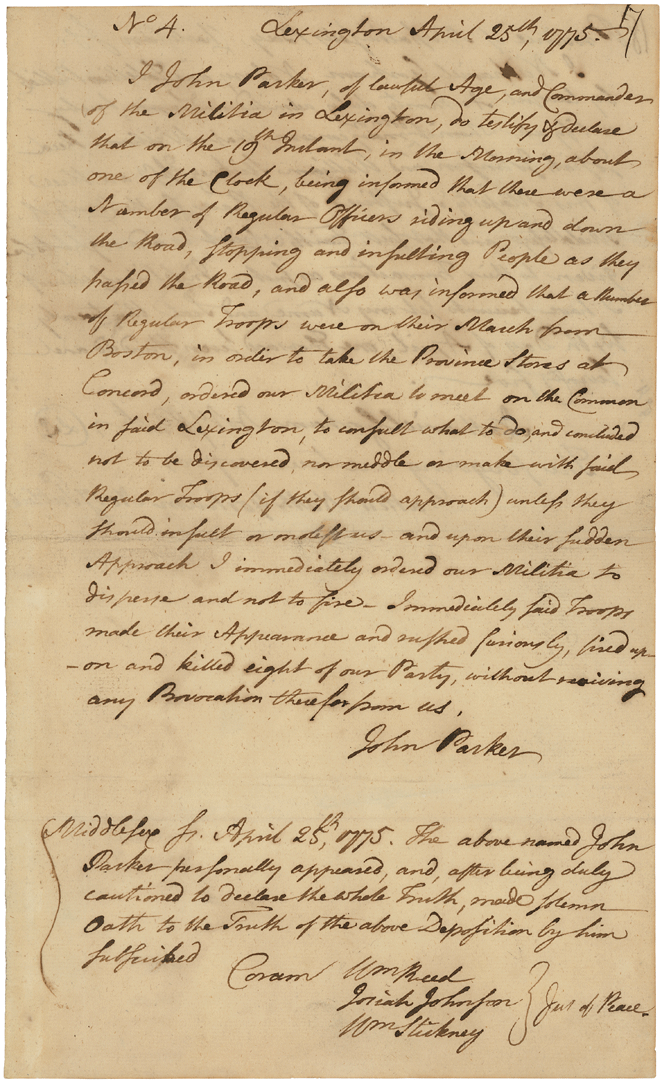 No 4. Lexington April 25th, 1775. 17
I John Parker, of lawful Age, and Commander
of the Militia in Lexington, do testify & declare
that on the 19th Instant, in the Morning, about
one of the Clock, being informed that there were a
Number of Regular Officers riding up and down
the Road, stopping and insulting People as they
passed the Road, and also was informed that a Number
of Regular Troops were on their March from
Boston, in order to take the Province Stores at
Concord, ordered our Militia to meet on the Common
in said Lexington, to consult what to do, and concluded
not to be discovered, nor meddle or make with said
Regular Troops (if they should approach) unless they
should insult or molest us – and upon their sudden
Approach I immediately ordered our Militia to
disperse and not to fire – Immediately said Troops
made their Appearance and rushed furiously, fired up-
-on and killed eight of our Party, without receiving
any Provocation therefor from us.
John Parker
Middlesex ss. April 25th, 1775. The above named John
Parker personally appeared, and, after being duly
cautioned to declare the whole Truth, made solemn
Oath to the Truth of the above Deposition by him
subscribed
Coram Wm Reed
Josiah Johnson
Wm Stickney
Jus of Peace